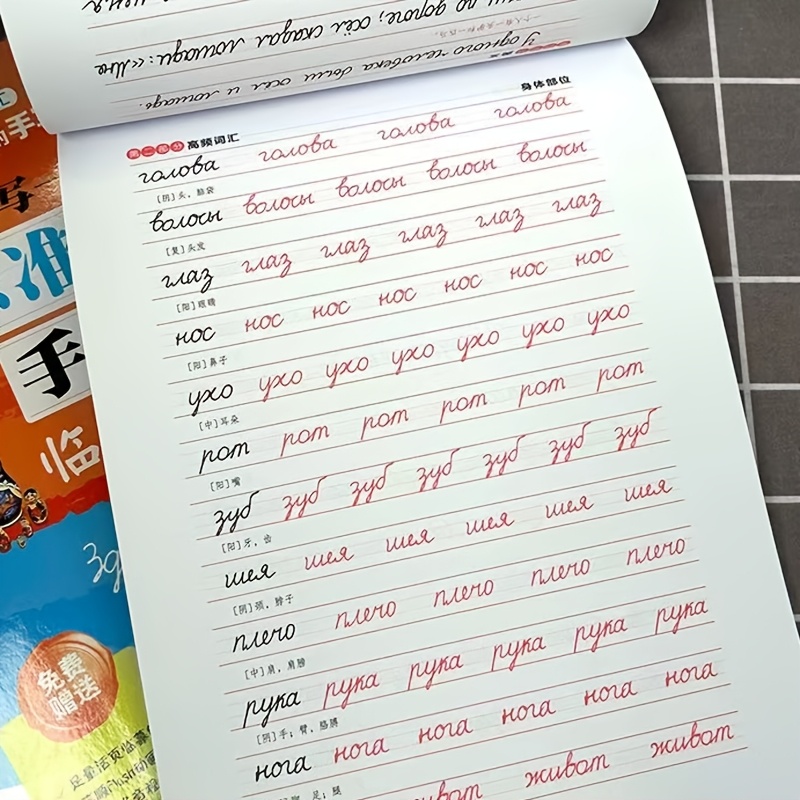 меня
ши по дороге; осёл сказал лошади: «Мне
У одного человека были осёл и лошадь.
一个人有一头驴和一匹马。
第二部分 高频词汇
身体部位
голова голова голова голова
[阴] 头，脑袋
волосы волосы волосы волосы волосы
[复] 头发
глаз глаз глаз глаз глаз глаз
[阳] 眼睛
нос нос нос нос нос нос нос
[阳] 鼻子
ухо ухо ухо ухо ухо ухо ухо
[中] 耳朵
рот рот рот рот рот рот
[阳] 嘴
зуб зуб зуб зуб зуб зуб зуб
[阳] 牙，齿
шея шея шея шея шея шея
[阴] 颈，脖子
плечо плечо плечо плечо плечо
[中] 肩，肩膀
рука рука рука рука рука рука
[阴] 手；臂，胳膊
нога нога нога нога нога нога
足；腿
живот живот
汇
手
写
准
手
临
免费
赠送
足量活页临摹